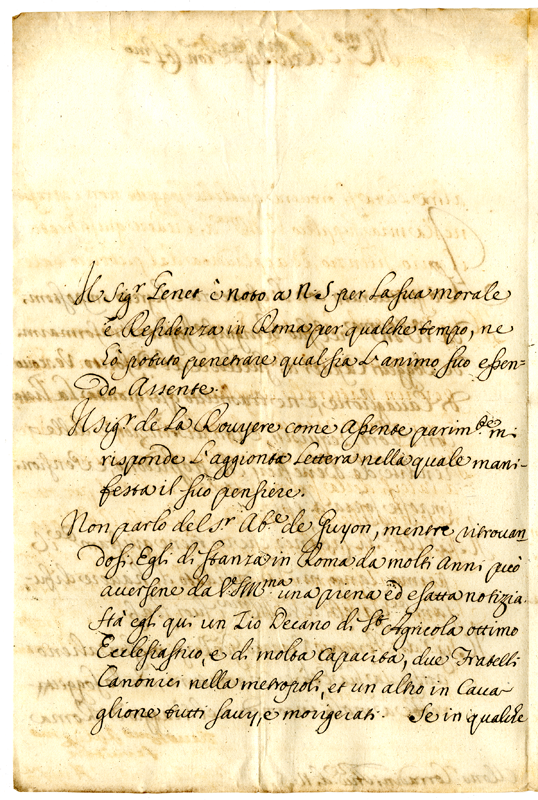 Il Sig.r Genet è noto a N. S. per la sua morale
è Residenza in Roma per qualche tempo, ne
hò potuto penetrare qual sia l'animo suo essen-
do Assente.
Il Sig.r de La Rouyere come assente parim.te mi
risponde l'aggionta lettera nella quale mani-
festa il suo pensiere.
Non parlo del s.r Ab.e de Guyon, mentre ritrovan
dosi Egli di stanza in Roma da molti anni può
aversene da V. S. Ill.ma una piena ed esatta notizia.
Stà egli qui un Zio Decano di S.t Agricola ottimo
Ecclesiastico, e di molta capacità, due Fratelli
Canonici nella metropoli, et un altro in Cava-
glione tutti savij, e morigerati. Se in qualche